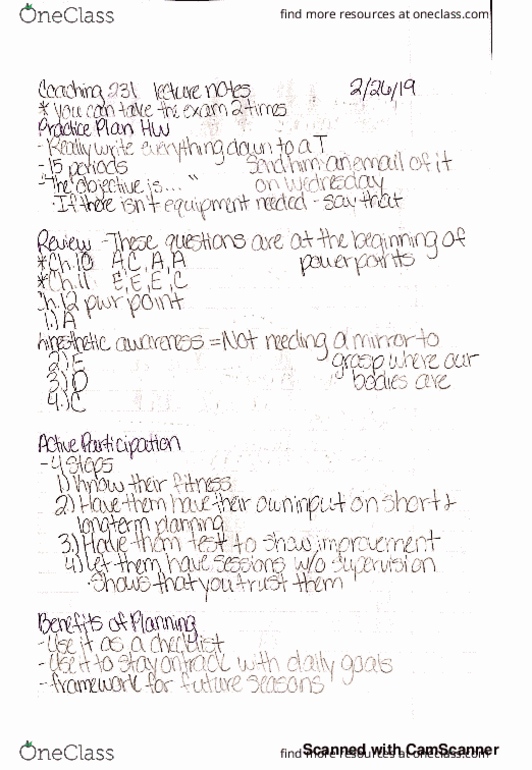 OneClass
find more resources at oneclass.com
Coaching 231 lecture notes 2/26/19
* you can take the exam 2 times
Practice Plan HW
- Really write everything down to a T
- 15 periods Send him an email of it
- "The objective is... " on Wednesday
· If there isn't equipment needed - say that
Review - These questions are at the beginning of
*Ch.10 A,C,A,A powerpoints
*Ch.11 E,E,E,C
Ch.12 pwr point
1.) A
kinesthetic awareness = Not needing a mirror to
2.) E grasp where our
3.) D bodies are
4.) C
Active Participation
- 4 Steps
1) Know their fitness
2.) Have them have their own input on short &
longterm planning
3.) Have them test to show improvement
4.) Let them have sessions w/o supervision
· Shows that you trust them
Benefits of Planning
- Use it as a checklist
- Use it to stay on track with daily goals
- framework for future seasons
OneClass
find more resources at oneclass.com
Scanned with CamScanner